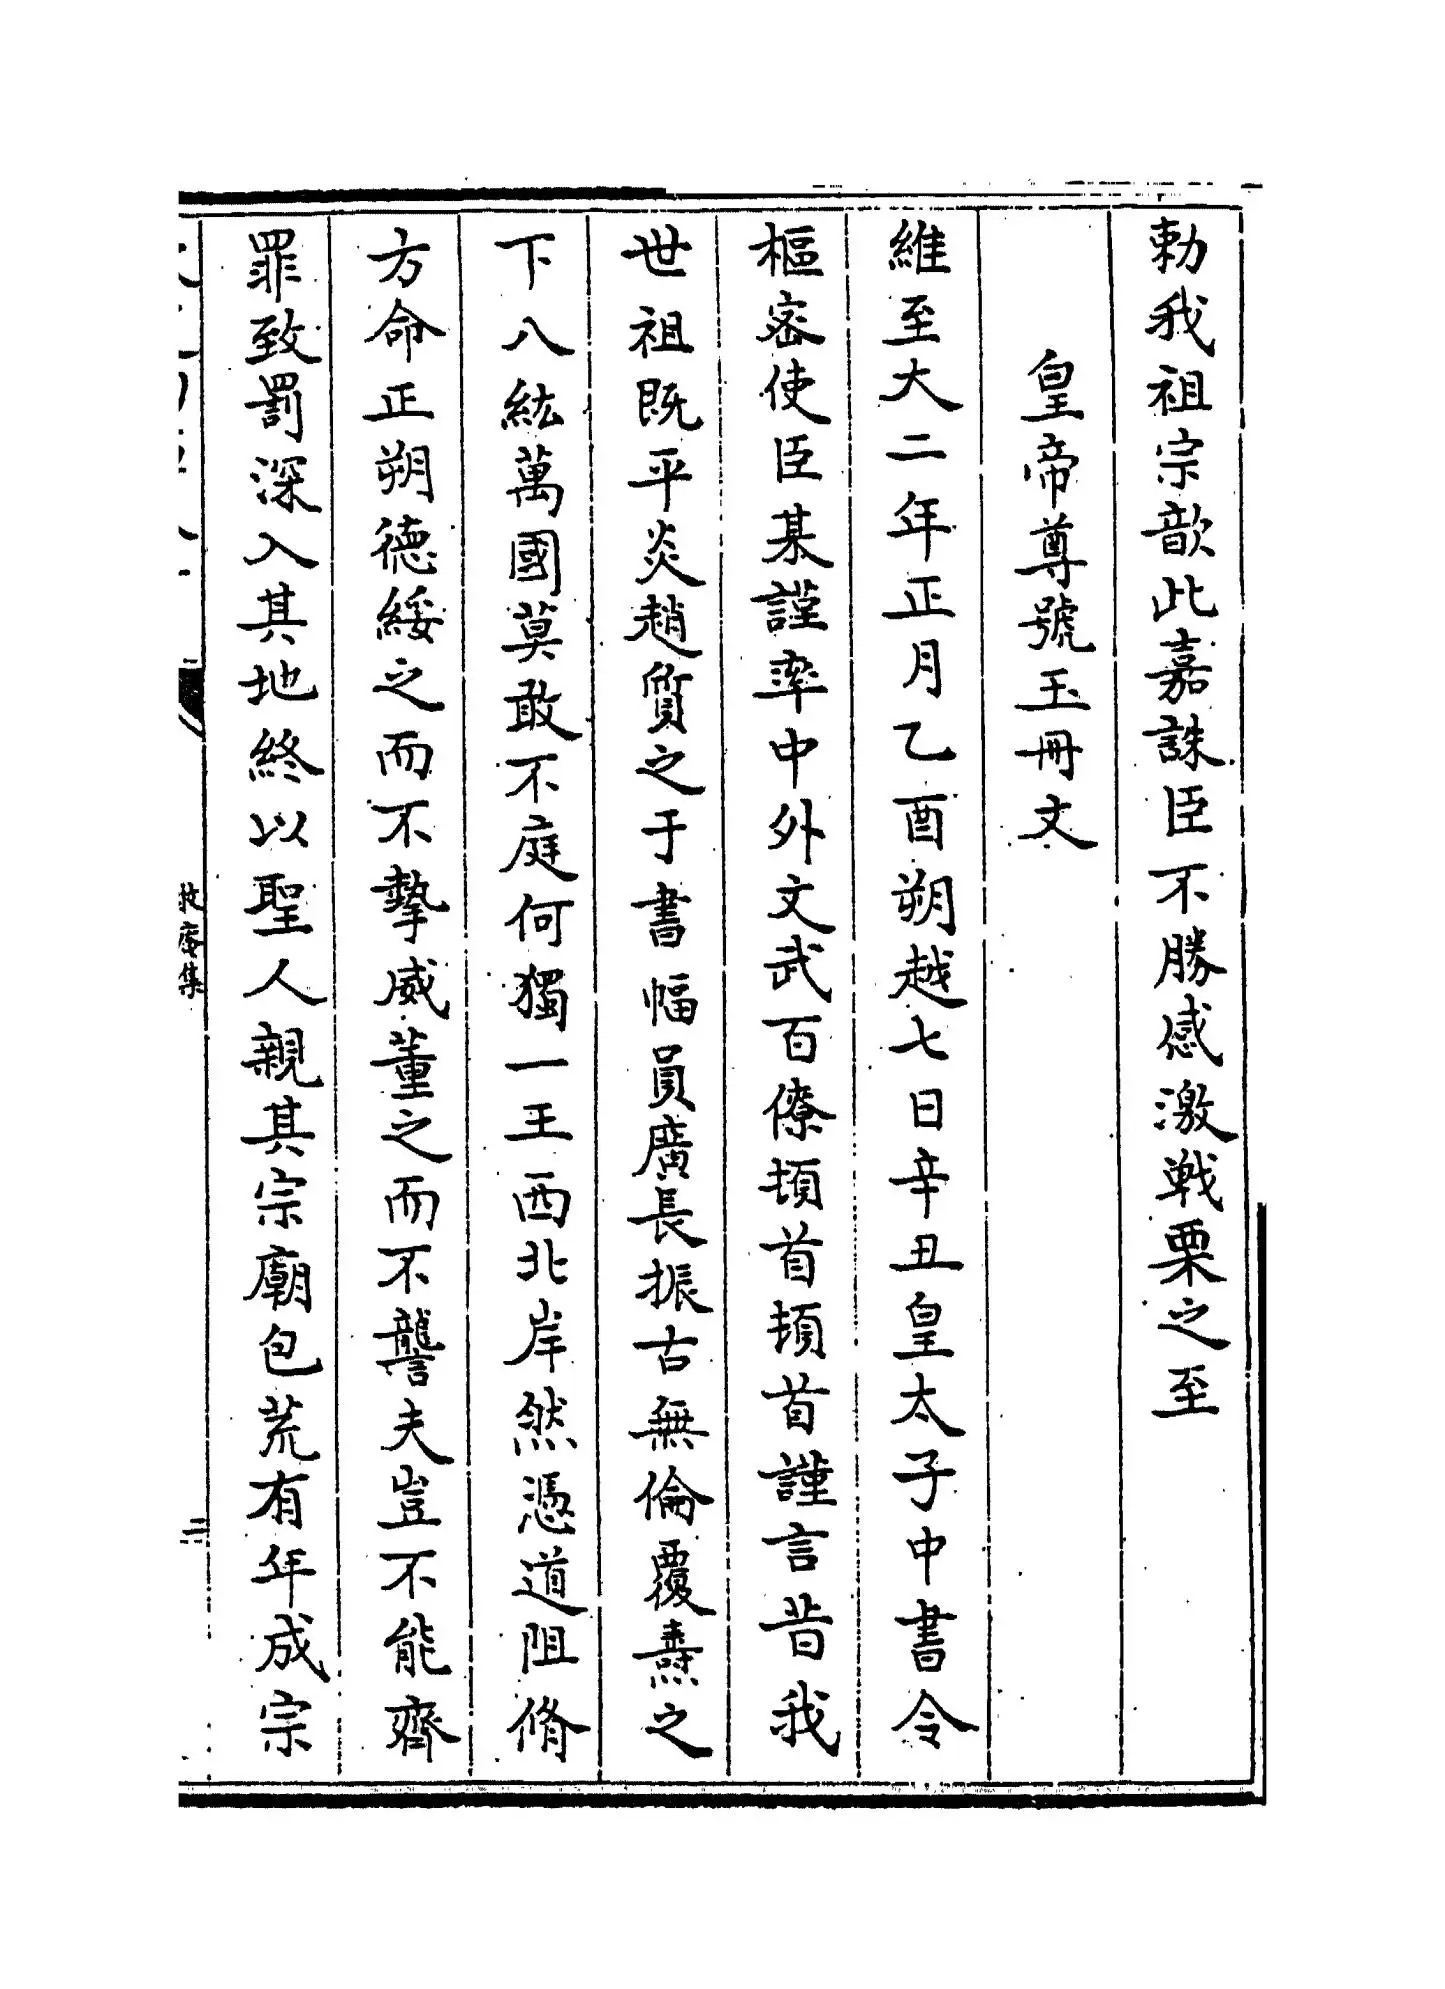 勅我祖宗歆此嘉誄臣不勝感激戰栗之至
皇帝尊號玉冊文
維至大二年正月乙酉朔越七日辛丑皇太子中書令
樞密使臣某謹率中外文武百僚頓首頓首謹言昔我
世祖既平炎趙質之于書幅員廣長振古無倫覆燾之
下八紘萬國莫敢不庭何獨一王西北岸然憑道阻脩
方命正朔德綏之而不摯威董之而不讋夫豈不能齊
罪致罰深入其地終以聖人親其宗廟包荒有年成宗
牧庵集
二